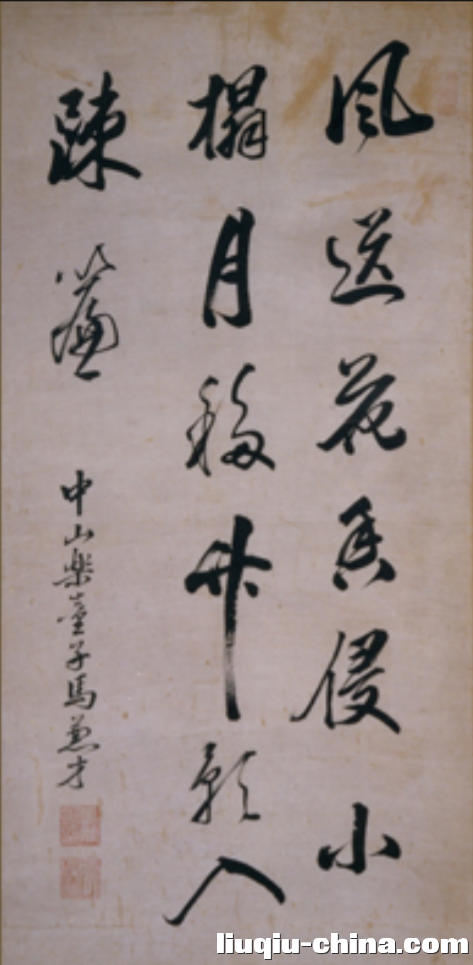 風送花香侵小
榻月移竹影入
疎簾
中山樂童子馬兼才
liuqiu-china.com